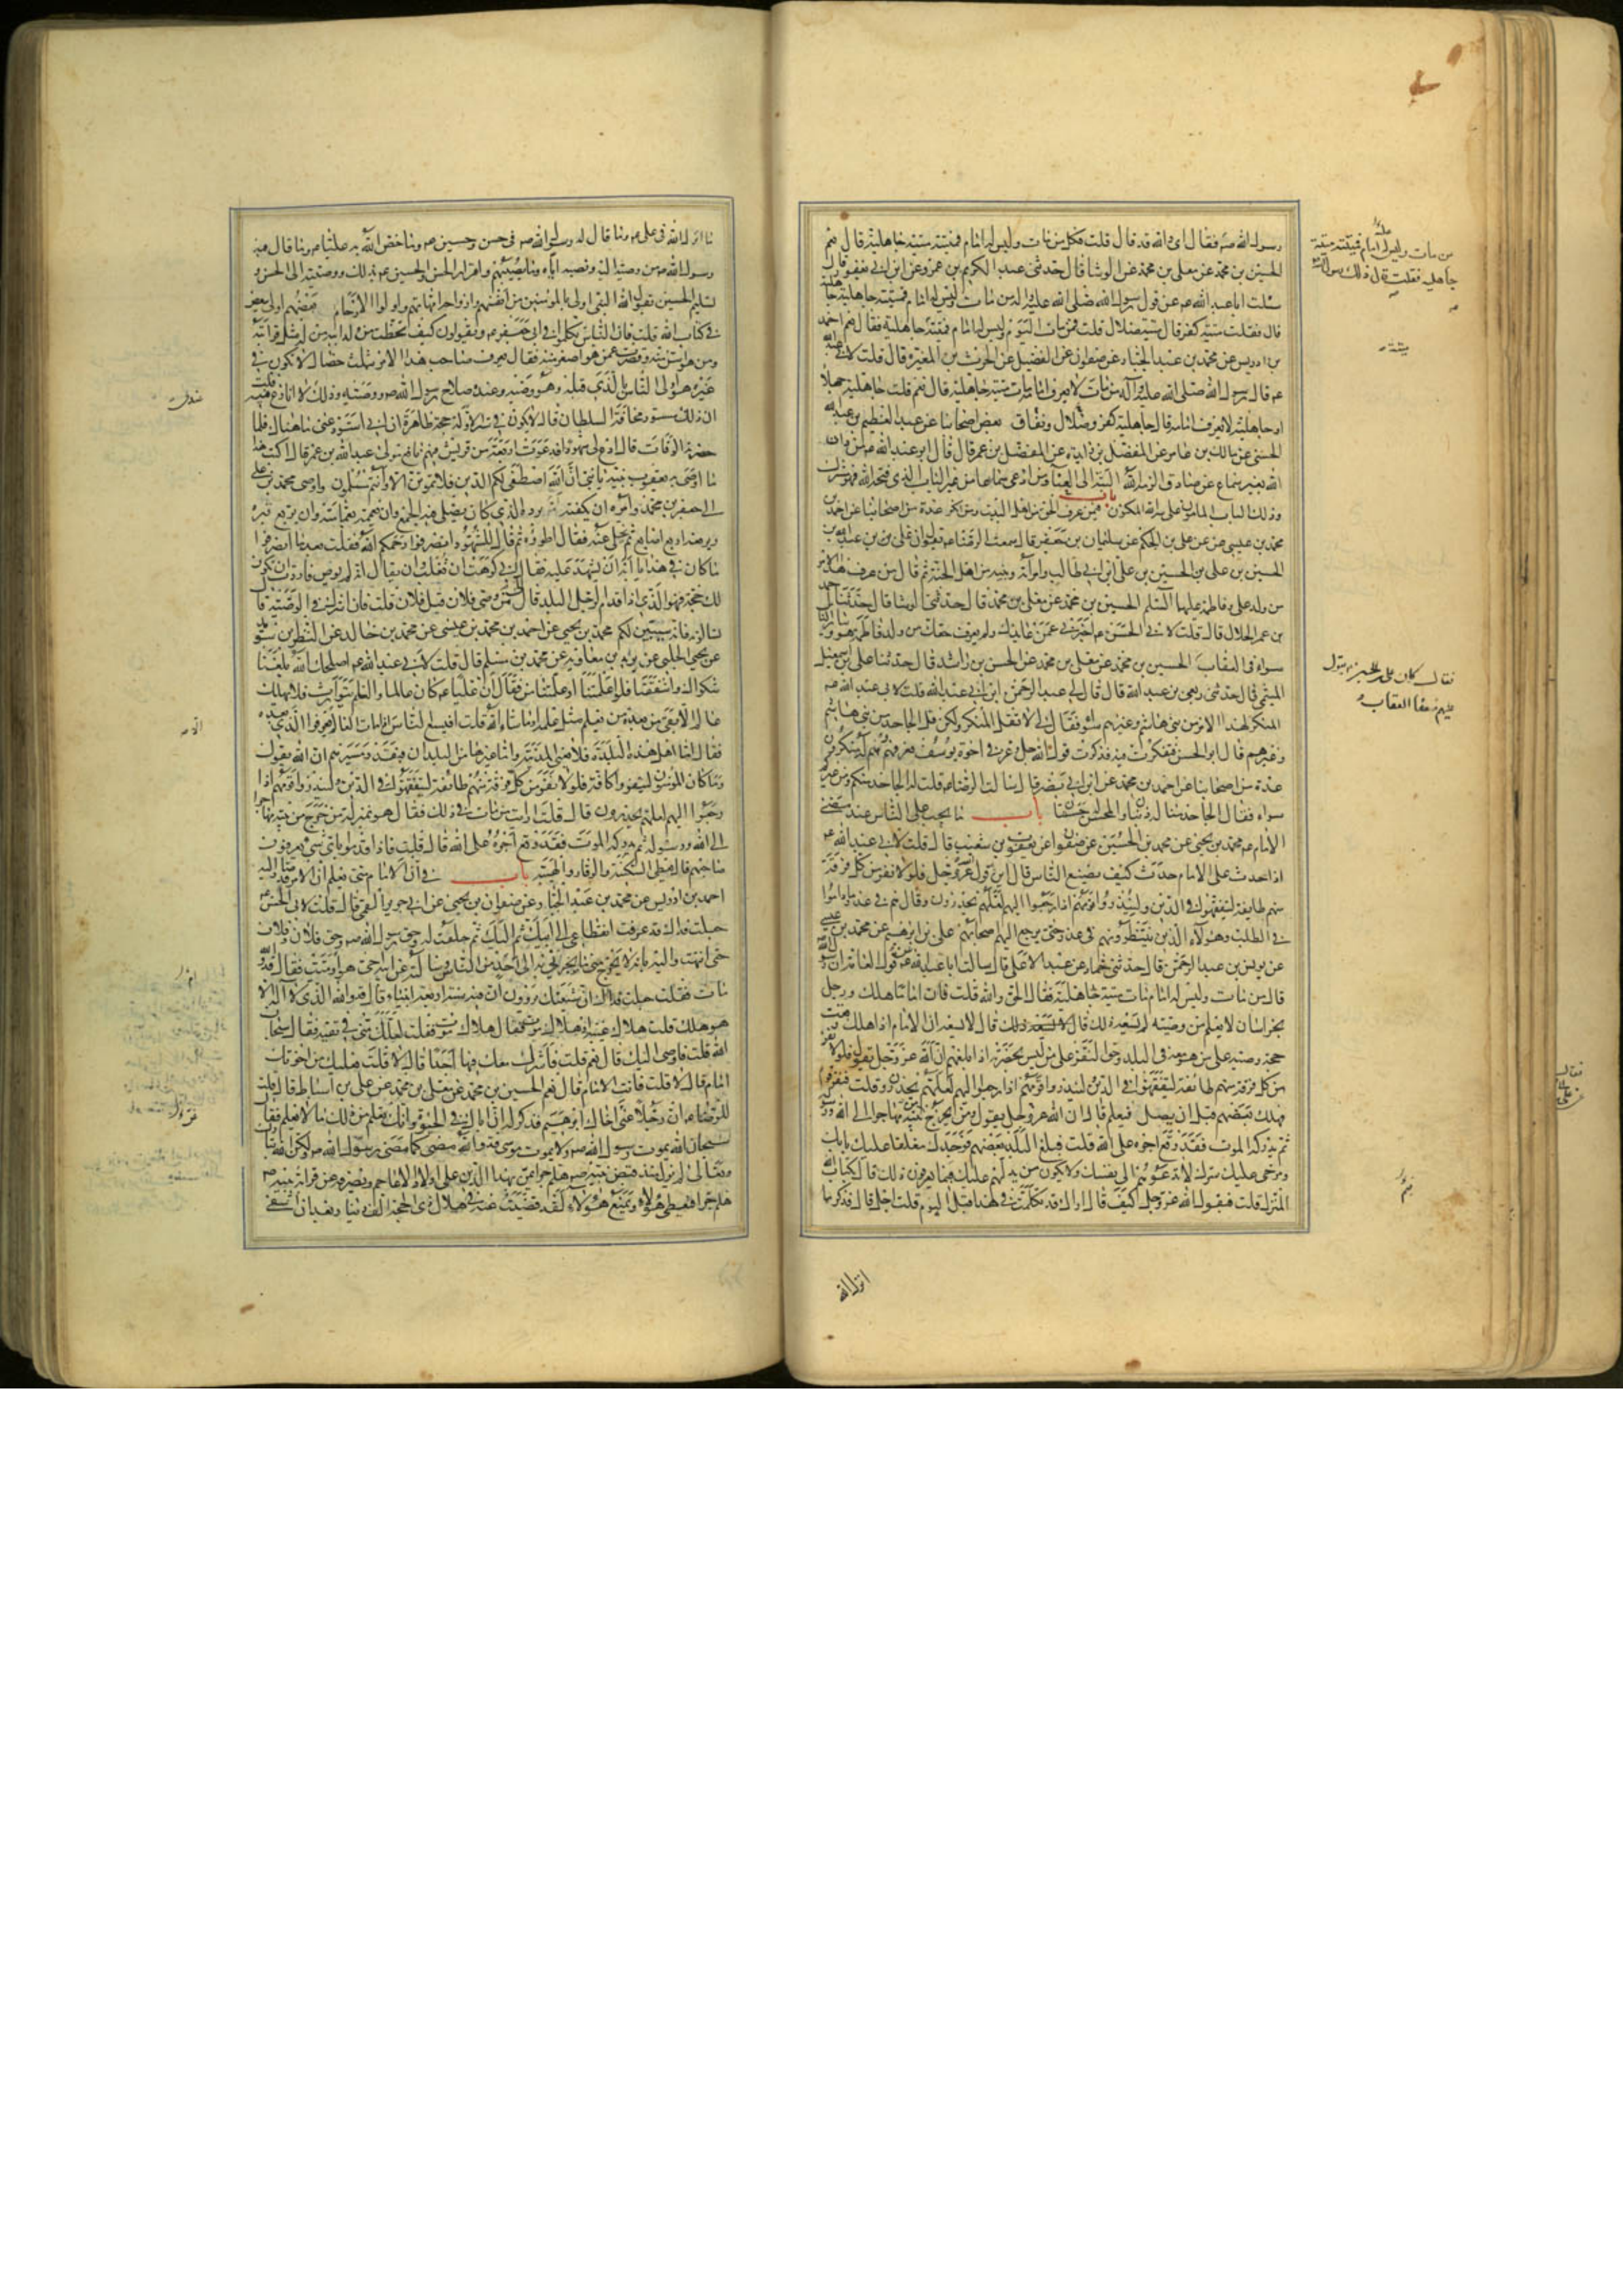 رسول الله ص فقال اى والله قد قال قلت فكل من مات وليس له امام فميتته ميتة جاهلية قال نعم
الحسين بن محمد عن معلى بن محمد عن الوشا قال حدثنى عبد الكريم بن عمرو عن ابن ابى يعفور قال
سئلت ابا عبد الله ع عن قول رسول الله صلى الله عليه واله من مات وليس له امام فميتته ميتة جاهلية
قال فقلت ميتة كفر قال ميتة ضلال قلت فمن مات اليوم وليس له امام فميتته جاهلية فقال نعم احمد
بن ادريس عن محمد بن عبد الجبار عن صفوان عن الفضيل عن الحرث بن المغيرة قال قلت لابى عبد الله
ع قال رسول الله صلى الله عليه وآله من مات لا يعرف امامه مات ميتة جاهلية قال نعم قلت جاهلية جهلاء
او جاهلية لا يعرف امامه قال جاهلية كفر وضلال ونفاق بعض اصحابنا عن عبد العظيم بن عبد الله
الحسنى عن مالك بن عامر عن المفضل بن زائدة عن المفضل بن عمر قال قال ابو عبد الله ع من دان
الله بغير سماع عن صادق الزمه الله البتة الى العناء ومن ادعى سماعا من غير الباب الذى فتحه الله فهو مشرك
وذلك الباب المامون على سر الله المكنون باب فيمن عرف الحق من اهل البيت ومن انكر عدة من اصحابنا عن احمد بن
محمد بن عيسى عن على بن الحكم عن سليمان بن جعفر قال سمعت الرضا ع يقول ان على بن عبد الله بن
الحسين بن على بن الحسين بن على ابن ابى طالب وامرأته وبنيه من اهل الجنة ثم قال من عرف هذا الامر
من ولد على وفاطمة عليهما السلم الحسين بن محمد عن معلى بن محمد قال حدثنى الوشا قال حدثنا احمد
بن عمر الحلال قال قلت لابى الحسن ع اخبرنى عمن عاندك ولم يعرف حقك من ولد فاطمة هو وسائر الناس
سواء فى العقاب الحسين بن محمد عن معلى بن محمد عن الحسن بن راشد قال حدثنا على بن اسمعيل
الميثمى قال حدثنى ربعى بن عبد الله قال قال لى عبد الرحمن ابن ابى عبد الله قلت لابى عبد الله ع
المنكر لهذا الامر من بنى هاشم وغيرهم سواء فقال لى لا تقل المنكر ولكن قل الجاحد من بنى هاشم
وغيرهم قال ابو الحسن فتفكرت فيه فذكرت قول الله جل وعز فى اخوة يوسف فعرفهم وهم له منكرون
عدة من اصحابنا عن احمد بن محمد عن ابن ابى نصر قال سالت الرضا ع قلت له الجاحد منكم ومن غيركم
سواء فقال الجاحد منا له ذنبان والمحسن له حسنتان باب ما يجب على الناس عند مضى
الامام ع محمد بن يحيى عن محمد بن الحسين عن صفوان عن يعقوب بن شعيب قال قلت لابى عبد الله ع
اذا حدث على الامام حدث كيف يصنع الناس قال اين قول الله عز وجل فلولا نفر من كل فرقة
منهم طائفة ليتفقهوا فى الدين ولينذروا قومهم اذا رجعوا اليهم لعلهم يحذرون وقال هم فى عذر ماداموا
فى الطلب وهؤلاء الذين ينتظرونهم فى عذر حتى يرجع اليهم اصحابهم على بن ابرهيم عن محمد بن عيسى
عن يونس بن عبد الرحمن قال حدثنى حماد عن عبد الاعلى قال سالت ابا عبد الله ع عن قول العامة ان رسول الله
قال من مات وليس له امام مات ميتة جاهلية فقال الحق والله قلت فان اماما هلك ورجل
بخراسان لا يعلم من وصيه لم يسعه ذلك قال لا يسعه ان الامام اذا هلك وقعت
حجة وصيه على من هو معه فى البلد وحق النفر على من ليس بحضرته اذا بلغهم ان الله عز وجل يقول فلولا نفر
من كل فرقة منهم طائفة ليتفقهوا فى الدين ولينذروا قومهم اذا رجعوا اليهم لعلهم يحذرون قلت فنفر قوم
فهلك بعضهم قبل ان يصل فيعلم قال ان الله عز وجل يقول ومن يخرج من بيته مهاجرا الى الله ورسوله
ثم يدركه الموت فقد وقع اجره على الله قلت فبلغ البلد بعضهم فوجدك مغلقا عليك بابك
ومرخى عليك سترك لا تدعوهم الى نفسك ولا يكون من يدلهم عليك فبما يعرفون ذلك قال بكتاب الله
المنزل قلت فيقول الله عز وجل كيف قال اراك قد تكلمت فى هذا قبل اليوم قلت اجل قال فذكر ما
انزل الله
من مات وليس له امام فميتته ميتة
جاهلية فقلت قال ذلك رسول الله
فقال كان على بن الحسين يقول
عليهم ضعفا العقاب
ما انزل الله فى على ع وما قال له رسول الله ص فى حسن وحسين ع وما خص الله به عليا ع وما قال فيه
رسول الله ص من وصيته اليه ونصبه اياه وما يصيبهم واقرار الحسن والحسين ع بذلك ووصيته الى الحسن و
تسليم الحسين بقول الله النبى اولى بالمؤمنين من انفسهم وازواجه امهاتهم واولوا الارحام بعضهم اولى ببعض
فى كتاب الله قلت فان الناس تكلموا فى ابى جعفر ع ويقولون كيف تخطت من ولد ابيه من له مثل قرابته
ومن هو اسن منه وقصرت عمن هو اصغر منه فقال يعرف صاحب هذا الامر بثلث خصال لا تكون فى
غيره هو اولى الناس بالذى قبله وهو وصيه وعنده سلاح رسول الله ص ووصيته وذلك عندى لا انازع فيه قلت
ان ذلك مستور مخافة السلطان قال لا يكون فى ستر الا وله حجة ظاهرة ان ابى استودعنى ما هناك فلما
حضرته الوفات قال ادع لى شهودا فدعوت اربعة من قريش فيهم نافع مولى عبد الله بن عمر قال اكتب هذا
ما اوصى به يعقوب بنيه يا بنى ان الله اصطفى لكم الدين فلا تموتن الا وانتم مسلمون واوصى محمد بن على
الى جعفر بن محمد وامره ان يكفنه فى برده الذى كان يصلى فيه الجمع وان يعممه بعمامته وان يربع قبره
ويرفعه اربع اصابع ثم يخلى عنه فقال اطووه ثم قال للشهود انصرفوا رحمكم الله فقلت بعد ما انصرفوا
ما كان فى هذا يا ابه ان تشهد عليه فقال انى كرهت ان تغلب وان يقال انه لم يوص فاردت ان تكون
لك حجة فهو الذى اذا قدم الرجل البلد قال من وصى فلان قيل فلان قلت فان اشرك فى الوصية قال
تسالونه فانه سيبين لكم محمد بن يحيى عن احمد بن محمد بن عيسى عن محمد بن خالد عن النضر بن سويد
عن يحيى الحلبى عن بريد بن معاوية عن محمد بن مسلم قال قلت لابى عبد الله ع اصلحك الله بلغنا
شكواك واشفقنا فلو اعلمتنا او علمتنا من فقال ان عليا ع كان عالما والعلم يتوارث فلا يهلك
عالم الا بقى من بعده من يعلم مثل علمه او ما شاء الله قلت افيسع الناس اذا مات العالم الا يعرفوا الذى بعده
فقال اما اهل هذه البلدة فلا يعنى المدينة واما غيرها من البلدان فبقدر مسيرهم ان الله يقول
وما كان المؤمنون لينفروا كافة فلولا نفر من كل فرقة منهم طائفة ليتفقهوا فى الدين ولينذروا قومهم اذا
رجعوا اليهم لعلهم يحذرون قال قلت ارايت من مات فى ذلك فقال هو بمنزلة من خرج من بيته مهاجرا
الى الله ورسوله ثم يدركه الموت فقد وقع اجره على الله قال قلت فاذا قدموا باى شىء يعرفون
صاحبهم قال يعطى السكينة والوقار والهيبة باب فى ان الامام متى يعلم ان الامر قد صار اليه
احمد بن ادريس عن محمد بن عبد الجبار عن صفوان بن يحيى عن ابى جرير القمى قال قلت لابى الحسن ع
جعلت فداك قد عرفت انقطاعى الى ابيك ثم اليك ثم حلفت له وحق رسول الله ص وحق فلان وفلان
حتى انتهيت اليه بانه لا يخرج منى ما تخبرنى به الى احد من الناس وسالته عن ابيه حى هو او ميت فقال قد والله
مات فقلت جعلت فداك ان شيعتك يروون ان فيه سنة اربعة انبياء قال قد والله الذى لا اله الا
هو هلك قلت هلاك غيبة او هلاك موت فقال هلاك موت فقلت لعلك منى فى تقية فقال سبحان
الله قلت فاوصى اليك قال نعم قلت فاشرك معك فيها احدا قال لا قلت فعليك من اخوتك
امام قال لا قلت فانت الامام قال نعم الحسين بن محمد عن معلى بن محمد عن على بن اسباط قال قلت
للرضا ع ان رجلا عنى اخاك ابرهيم فذكر له ان اباك فى الحيوة وانك تعلم من ذلك ما لا يعلم فقال
سبحان الله يموت رسول الله ص ولا يموت موسى قد والله مضى كما مضى رسول الله ص ولكن الله تبارك
وتعالى لم يزل منذ قبض نبيه ص هلم جرا يمن بهذا الدين على اولاد الاعاجم ويصرفه عن قرابة نبيه ص
هلم جرا فيعطى هؤلاء ويمنع هؤلاء لقد قضيت عنه فى هلال ذى الحجة الف دينار بعد ان اشفى